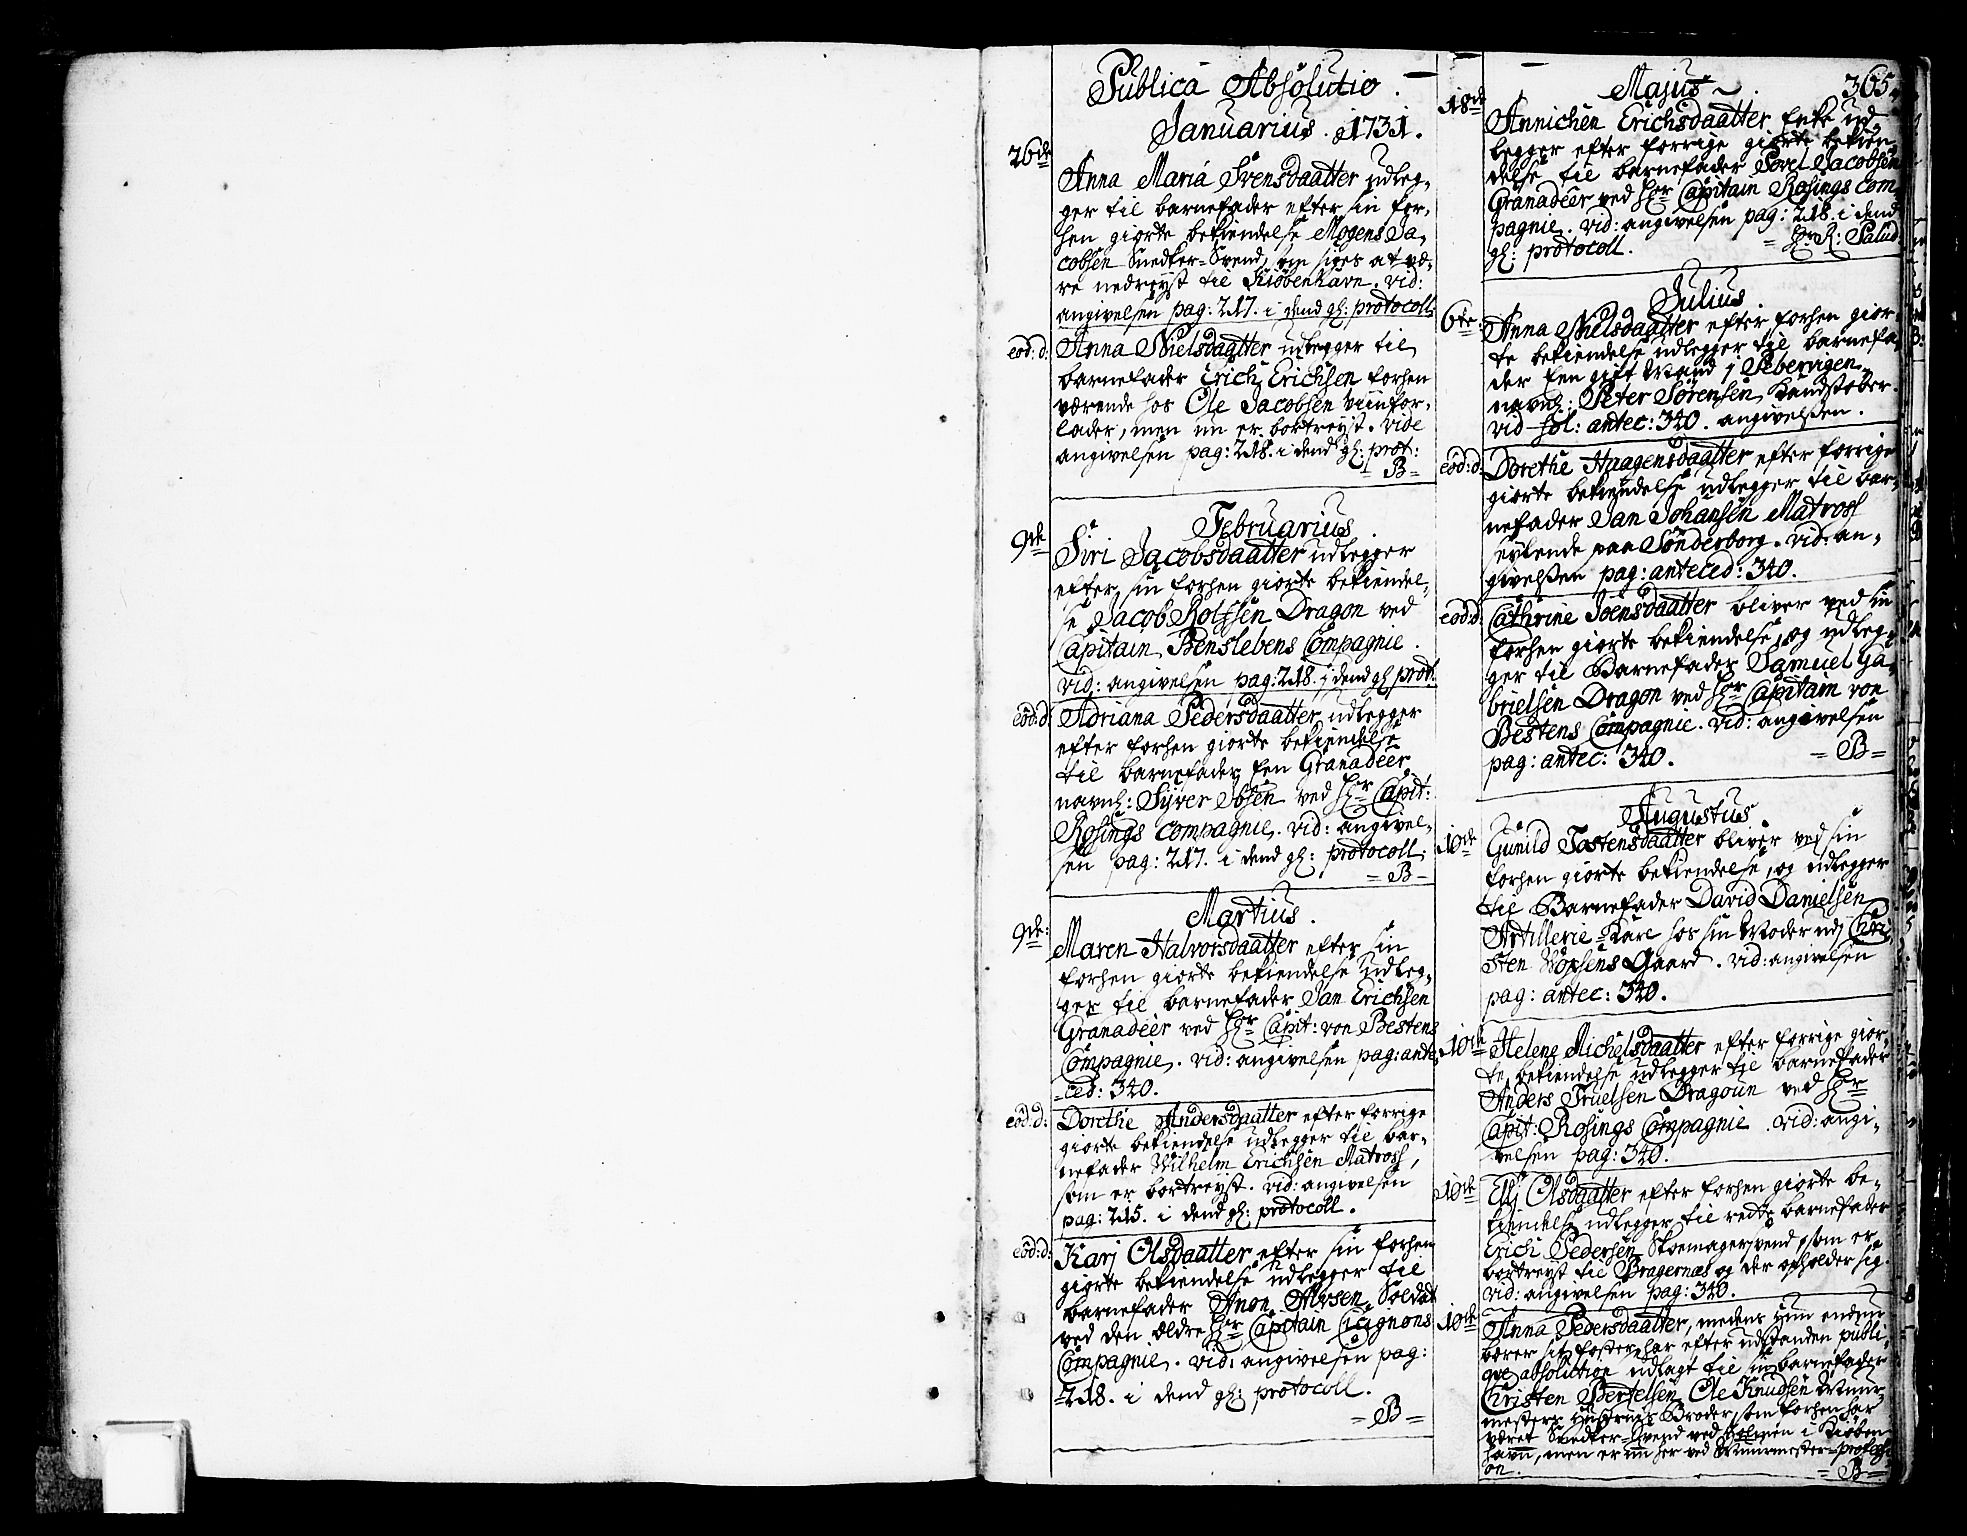 Publica Absolutio.
Januarius. 1731.
26de
Anna Maria Svensdaatter udleg-
ger til barnefader efter sin for-
hen giorte bekiendelse Mogens Ja-
cobsen Snedker-Svend, som siges at væ-
re nedreyst til Kiöbenhavn. vid:
angivelsen pag: 217. i dend gl: protocoll.
eod: d: Anna Nielsdaatter udlegger til
barnefader Erich Erichsen forhen
værende hos Ole Jacobsen Viinfor-
lader, men nu er bortreyst. vide
angivelsen pag: 218. i dend gl: prot:
= B =
Februarius.
9de Siri Jacobsdaatter udlegger
efter sin forhen giorte bekiendel-
se Jacob Rolfsen Dragon ved
Capitain Benslebens Compagnie.
vid: angivelsen pag: 218. i dend gl prot.
eod: d: Adriana Pedersdaatter udlegger
efter forhen giorte bekiendelse
til barnefader Een Granadeer
navnl: Syver Ibsen ved Hr Capit:
Rosings Compagnie. vid: angivel-
sen pag: 217. i dend gl: protocoll.
= B =
Martius.
9de: Maren Halvorsdaatter efter sin
forhen giorte bekiendelse udleg-
ger til barnefader Jan Erichsen
Granadeer ved Hr Capit: von Bestens
Compagnie. vid: angivelsen pag: ante-
ced: 340.
eod: d: Dorethe Andersdaatter efter forrige
giorte bekiendelse udlegger til bar-
nefader Wilhelm Erichsen Matross,
som er bortreyst. vid: angivelsen
pag: 215. i dend gl: protocoll.
eod: d: Karj Olsdaatter efter sin forhen
giorte bekiendelse udlegger til
barnefader Anon Alvsen Soldat
ved den ældre Hr Capitain Cicignons
Compagnie. vid: angivelsen pag:
218. i dend gl: protocoll.
= B =
365
Majus.
18de Annichen Erichsdaatter Enke ud-
legger efter forrige giorte bekien-
delse til barnefader Povel Jacobsen
Granadeer ved Hr Capitain Rosings Com-
pagnie. vid: angivelsen pag: 218. i dend
gl: protocoll. = Hr R: Palud:
Julius.
6te: Anna Nielsdaatter efter forhen gior-
te bekiendelse udlegger til barnefa-
der Een gift Mand j Pebervigen
navnl: Peter Sörensen Kandstöber.
vid fol: antec: 340. angivelsen.
eod: d: Dorethe Haagensdaatter efter forrige
giorte bekiendelse udlegger til bar-
nefader Jan Johansen Matross
seylende paa Sönderborg. vid: an-
givelsen pag: anteced: 340.
eod: d: Cathrine Joensdaatter bliver ved sin
forhen giorte bekiendelse, og udleg-
ger til Barnefader Samuel Ga-
brielsen Dragon ved Hr Capitain von
Bestens Compagnie. vid: angivelsen
pag: antec: 340. = B =
Augustus.
10de Gunild Tostensdaatter bliver ved sin
forhen giorte bekiendelse, og udlegger
til Barnefader David Danielsen
Artillerie-Karl hos sin Moder udj Chri-
sten Gaard. vid: angivelsen
pag: antec: 340.
10de Helene Michelsdaatter efter forrige gior-
te bekiendelse udlegger til barnefader
Anders Truelsen Dragoun ved Hr
Capit: Rosings Compagnie. vid: angi-
velsen pag: 340.
10de Elj Olsdaatter efter forhen giorte be-
kiendelse udlegger til rette barnefader
Erich Pedersen Skoemagersvend, som er
bortreyst til Bragernæs og der opholder sig.
vid: angivelsen pag: 340.
10de Anna Pedersdaatter, medens hun endnu
bærer sit foster, har efter udstanden publi-
qve absolution udlagt til sin barnefader
Christen Bertelsen, Ole Knudsen Muur-
mesters Hustrues Broder, som forhen har
været Snedker-Svend ved Holmen i Kiöben-
havn, men er nu her ved Muurmester-professi-
on. = B =